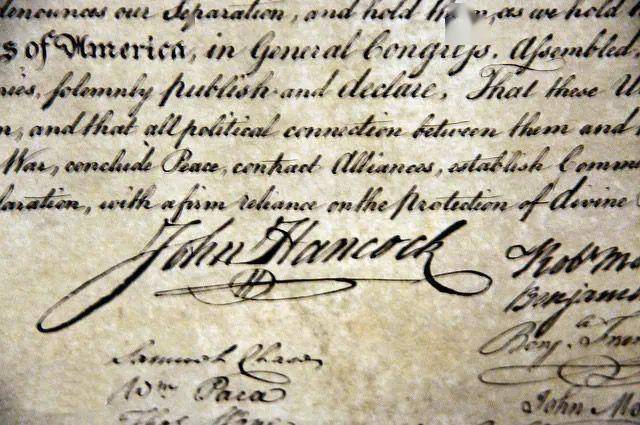 denounces our Separation, and hold them, as we hold
s of America, in General Congreſs, Aſsembled,
nies, ſolemnly publish and declare, That these U
n, and that all political connection between them and
War, conclude Peace, contract Alliances, establish Comme
laration, with a firm reliance on the protection of divine
John Hancock
Robt Mo
Benjamin
Benj. Fran
John Mo
Samuel Chase
Wm. Paca
Thos